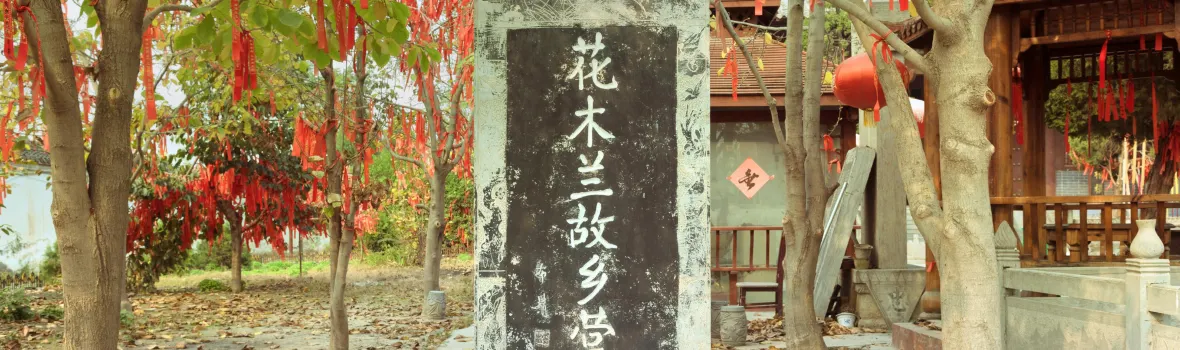 花木兰故乡营